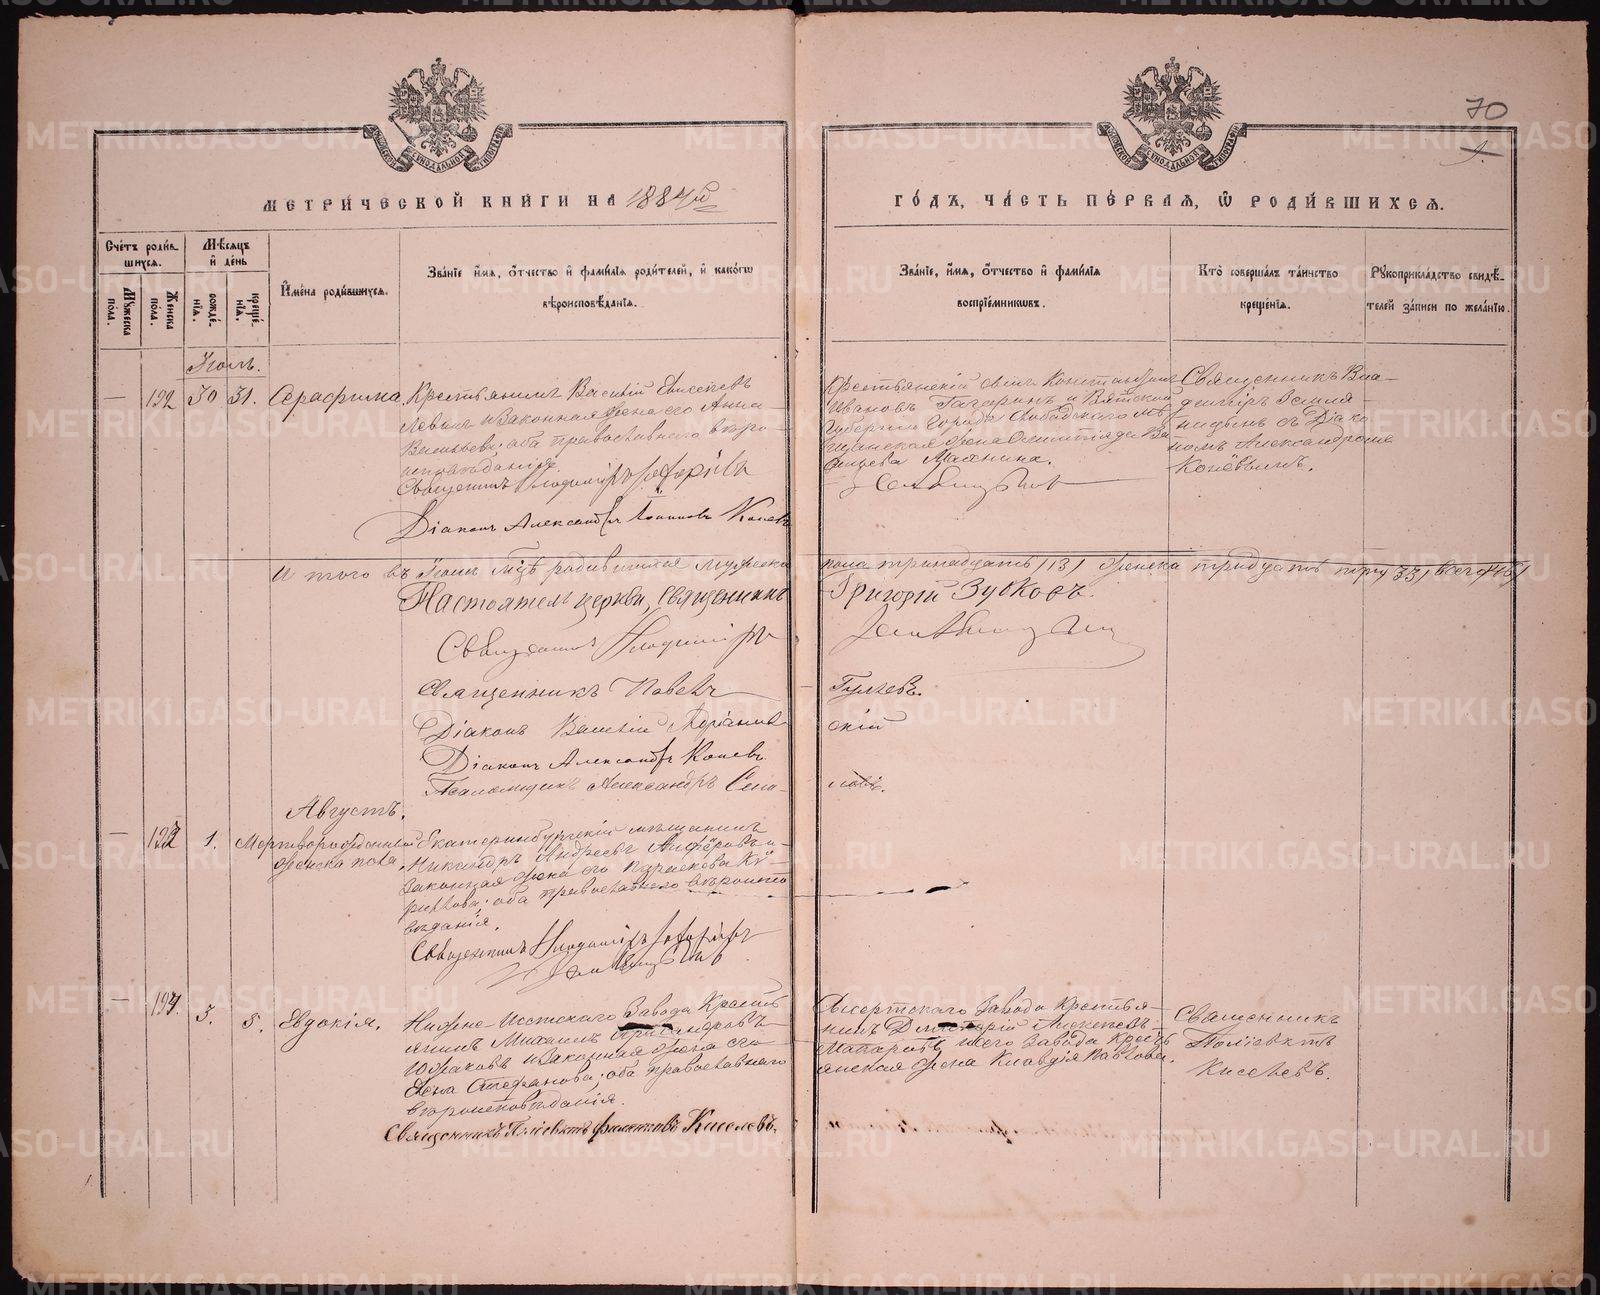 70
1.
МЕТРИЧЕСКОЙ КНИГИ НА 1884й
ГОДЪ, ЧАСТЬ ПЕРВАЯ, Ѡ РОДИВШИХСЯ.
Счетъ родившихся.
Мужеска пола.
Женска пола.
Мѣсяцъ и день
рожденія.
крещенія.
Имена родившихся.
Званіе, имя, отчество и фамилія родителей, и какогѡ
вѣроисповѣданія.
Званіе, имя, отчество и фамилія
воспріемниковъ.
Кто совершалъ таинство
крещенія.
Рукоприкладство свидѣ-
телей записи по желанію.
Іюль.
— 192 30 31. Серафима.
Крестьянинъ Василій Елисеевъ
Левинъ и законная жена его Анна
Васильева; оба православнаго вѣро-
исповѣданія.
Священникъ Владиміръ
Діаконъ Александръ Іоанновъ Коневъ
Крестьянскій сынъ Константинъ
Ивановъ Гагаринъ и Вятской
Губерніи города Слободскаго мѣ-
щанская жена Олимпіада Ва-
Священникъ Вла-
диміръ Земля-
ницынъ съ Діако-
номъ Александромъ
Конёвымъ.
Итого въ Іюлѣ мцѣ родившихся мужеска
пола тринадцать /13/ женска тридцать три /33/ всего /46/
Настоятель церкви, Священникъ
Григорій Зубковъ.
Священникъ Владиміръ
Земляницынъ
Священникъ Павелъ
Гуляевъ.
Діаконъ Василій
скій
Діаконъ Александръ Коневъ.
Псаломщикъ Александръ
Августъ.
— 193 1. Мертворожденный
женска пола.
Екатеринбургскій мѣщанинъ
Никандръ Андреевъ Алферовъ и
законная жена его Параскева Ки-
риллова; оба православнаго вѣроиспо-
вѣданія.
Священникъ Владиміръ
Земляницынъ
— 194. 3. 5. Евдокія.
Нижне-Исетскаго Завода Кресть-
янинъ Михаилъ
и законная жена его
Анна Стефанова; оба православнаго
вѣроисповѣданія.
Священникъ Поліевктъ Филетовъ Киселевъ.
Сысертскаго Завода Крестья-
нинъ Димитрій Алексѣевъ
Макаровъ и сего Завода Кресть-
янская жена Клавдія Павлова.
Священникъ
Поліевктъ
Киселевъ.
METRIKI.GASO-URAL.RU